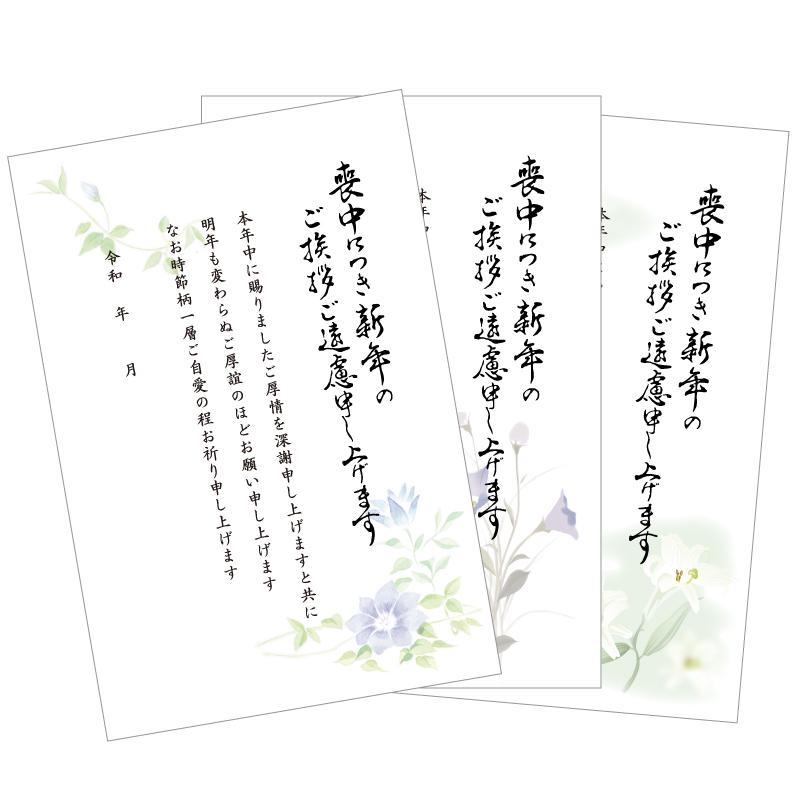 喪中につき新年の
ご挨拶ご遠慮申し上げます
本年中に賜りましたご厚情を深謝申し上げますと共に
明年も変わらぬご厚誼のほどお願い申し上げます
なお時節柄一層ご自愛の程お祈り申し上げます
令和　年　月
喪中につき新年の
ご挨拶ご遠慮申し上げます
本年中
喪中につき新年の
ご挨拶ご遠慮申し上げます
本年中